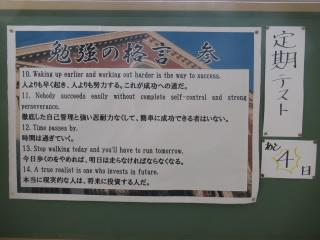 勉強の格言 参
10. Waking up earlier and working out harder is the way to success.
人よりも早く起き、人よりも努力する。これが成功への道だ。
11. Nobody succeeds easily without complete self-control and strong
perseverance.
徹底した自己管理と強い忍耐力なくして、簡単に成功できる者はいない。
12. Time passes by.
時間は過ぎていく。
13. Stop walking today and you'll have to run tomorrow.
今日歩くのをやめれば、明日は走らなければならなくなる。
14. A true realist is one who invests in future.
本当に現実的な人は、将来に投資する人だ。
定期テスト
あと
4
日